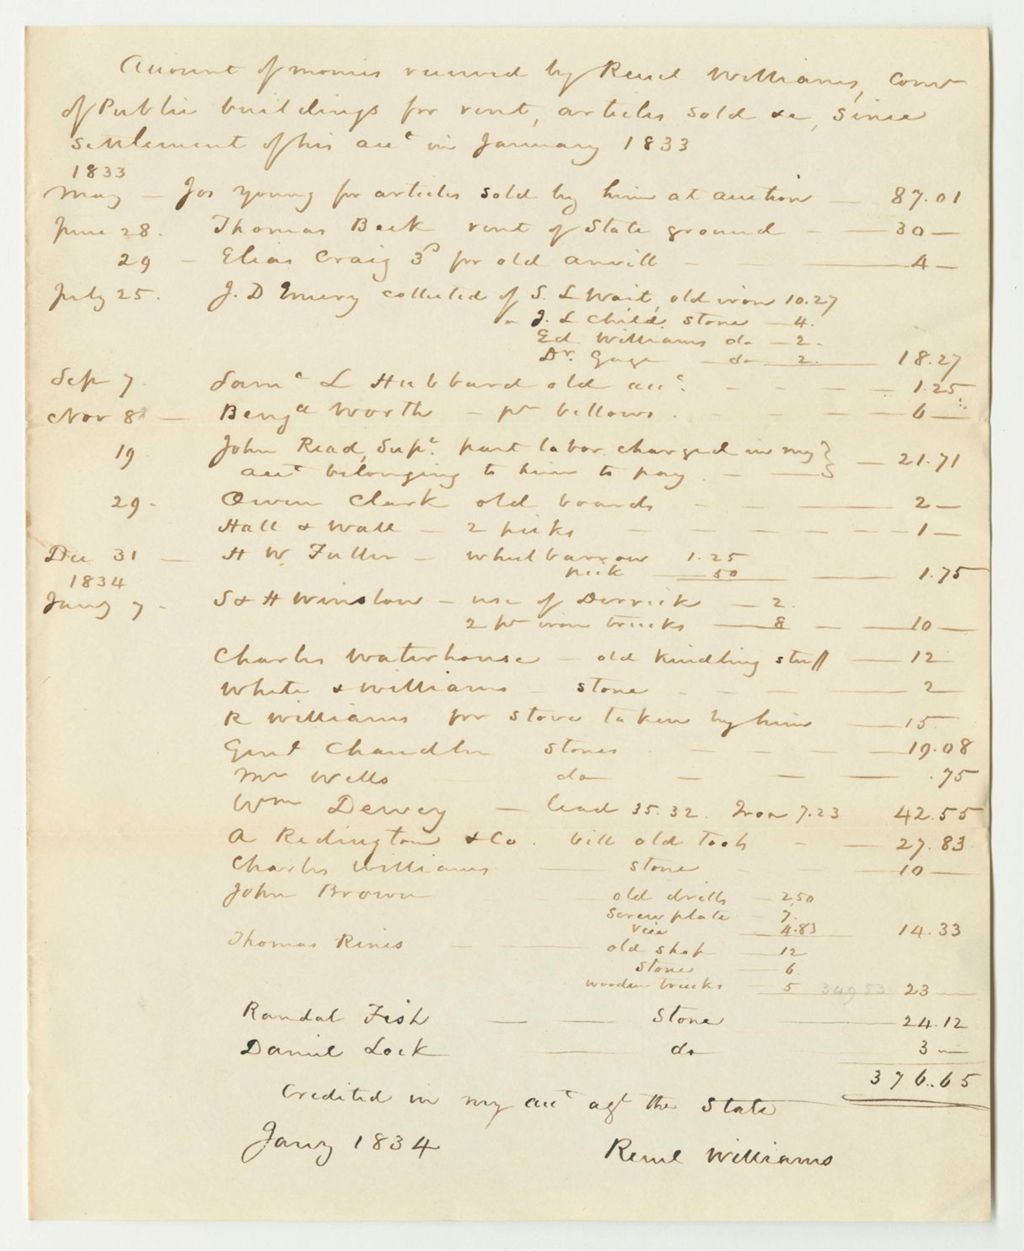 Account of monies received by Reuel Williams, Comr
of Public buildings for rent, articles sold &c, Since
settlement of his acct in January 1833
1833
May — Jos Young for articles sold by him at auction — 87.01
June 28. Thomas Beck rent of State ground — 30 —
29 — Elias Craig 3d for old anvill — 4 —
July 25. J. D Emery collected of S. L Wait, old iron 10.27
" J. L Child, stone — 4.
Ed Williams do — 2.
Dr. Gage — do — 2. — 18.27
Sep 7. Saml L Hubbard old acct. — 1.25
Nov 8 — Benja Worth — pr bellows. — 6 —
19 John Read, Supt. part labor charged in my }
acct belonging to him to pay. — } — 21.71
29. Owen Clark old boards — 2 —
Hall & Wall — 2 picks — 1 —
Dec 31 — H W Fuller — wheelbarrow 1.25
pick — 50 — 1.75
1834
Jany 7. S & H Winslow — use of Derrick — 2.
2 pr iron trucks — 8 — 10 —
Charles Waterhouse — old kindling stuff — 12
White & Williams — stone — 2
R Williams for stove taken by him — 15
Genl Chandler stones — 19.08
Mr Wells do — .75
Wm Dewey — lead 35.32. Iron 7.23 42.55
A Redington & Co. bill old tools — 27.83
Charles Williams — stone — 10 —
John Brown old drills — 2.50
Screw plate — 7.
Vice — 4.83 14.33
Thomas Rines — old shop — 12
Stone — 6.
wooden trucks — 5 349 53 23 —
Randal Fish — Stone — 24.12
Daniel Lock — do 3 —
376.65
Credited in my acct agt the State
Jany 1834 Reuel Williams